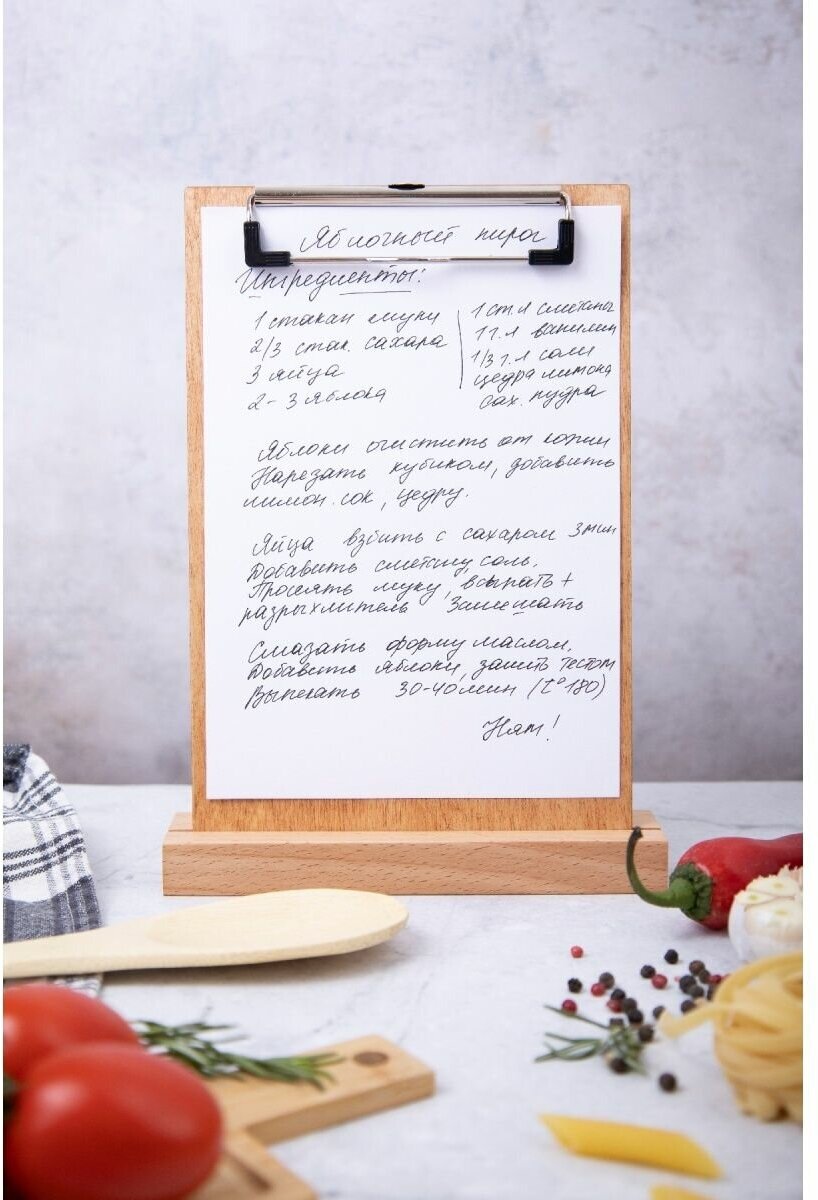 Яблочный пирог
Ингредиенты:
1 стакан муки
2/3 стак. сахара
3 яйца
2-3 яблока
1 ст.л сметаны
1 г.л ванилин
1/3 г.л соли
цедра лимона
сах. пудра
Яблоки очистить от кожи
Нарезать кубиком, добавить
лимон. сок, цедру.
Яйца взбить с сахаром 3 мин
Добавить сметану, соль.
Просеять муку, всыпать +
разрыхлитель Замешать
Смазать форму маслом.
Добавить яблоки, залить тестом
Выпекать 30-40 мин (t° 180)
Ням!